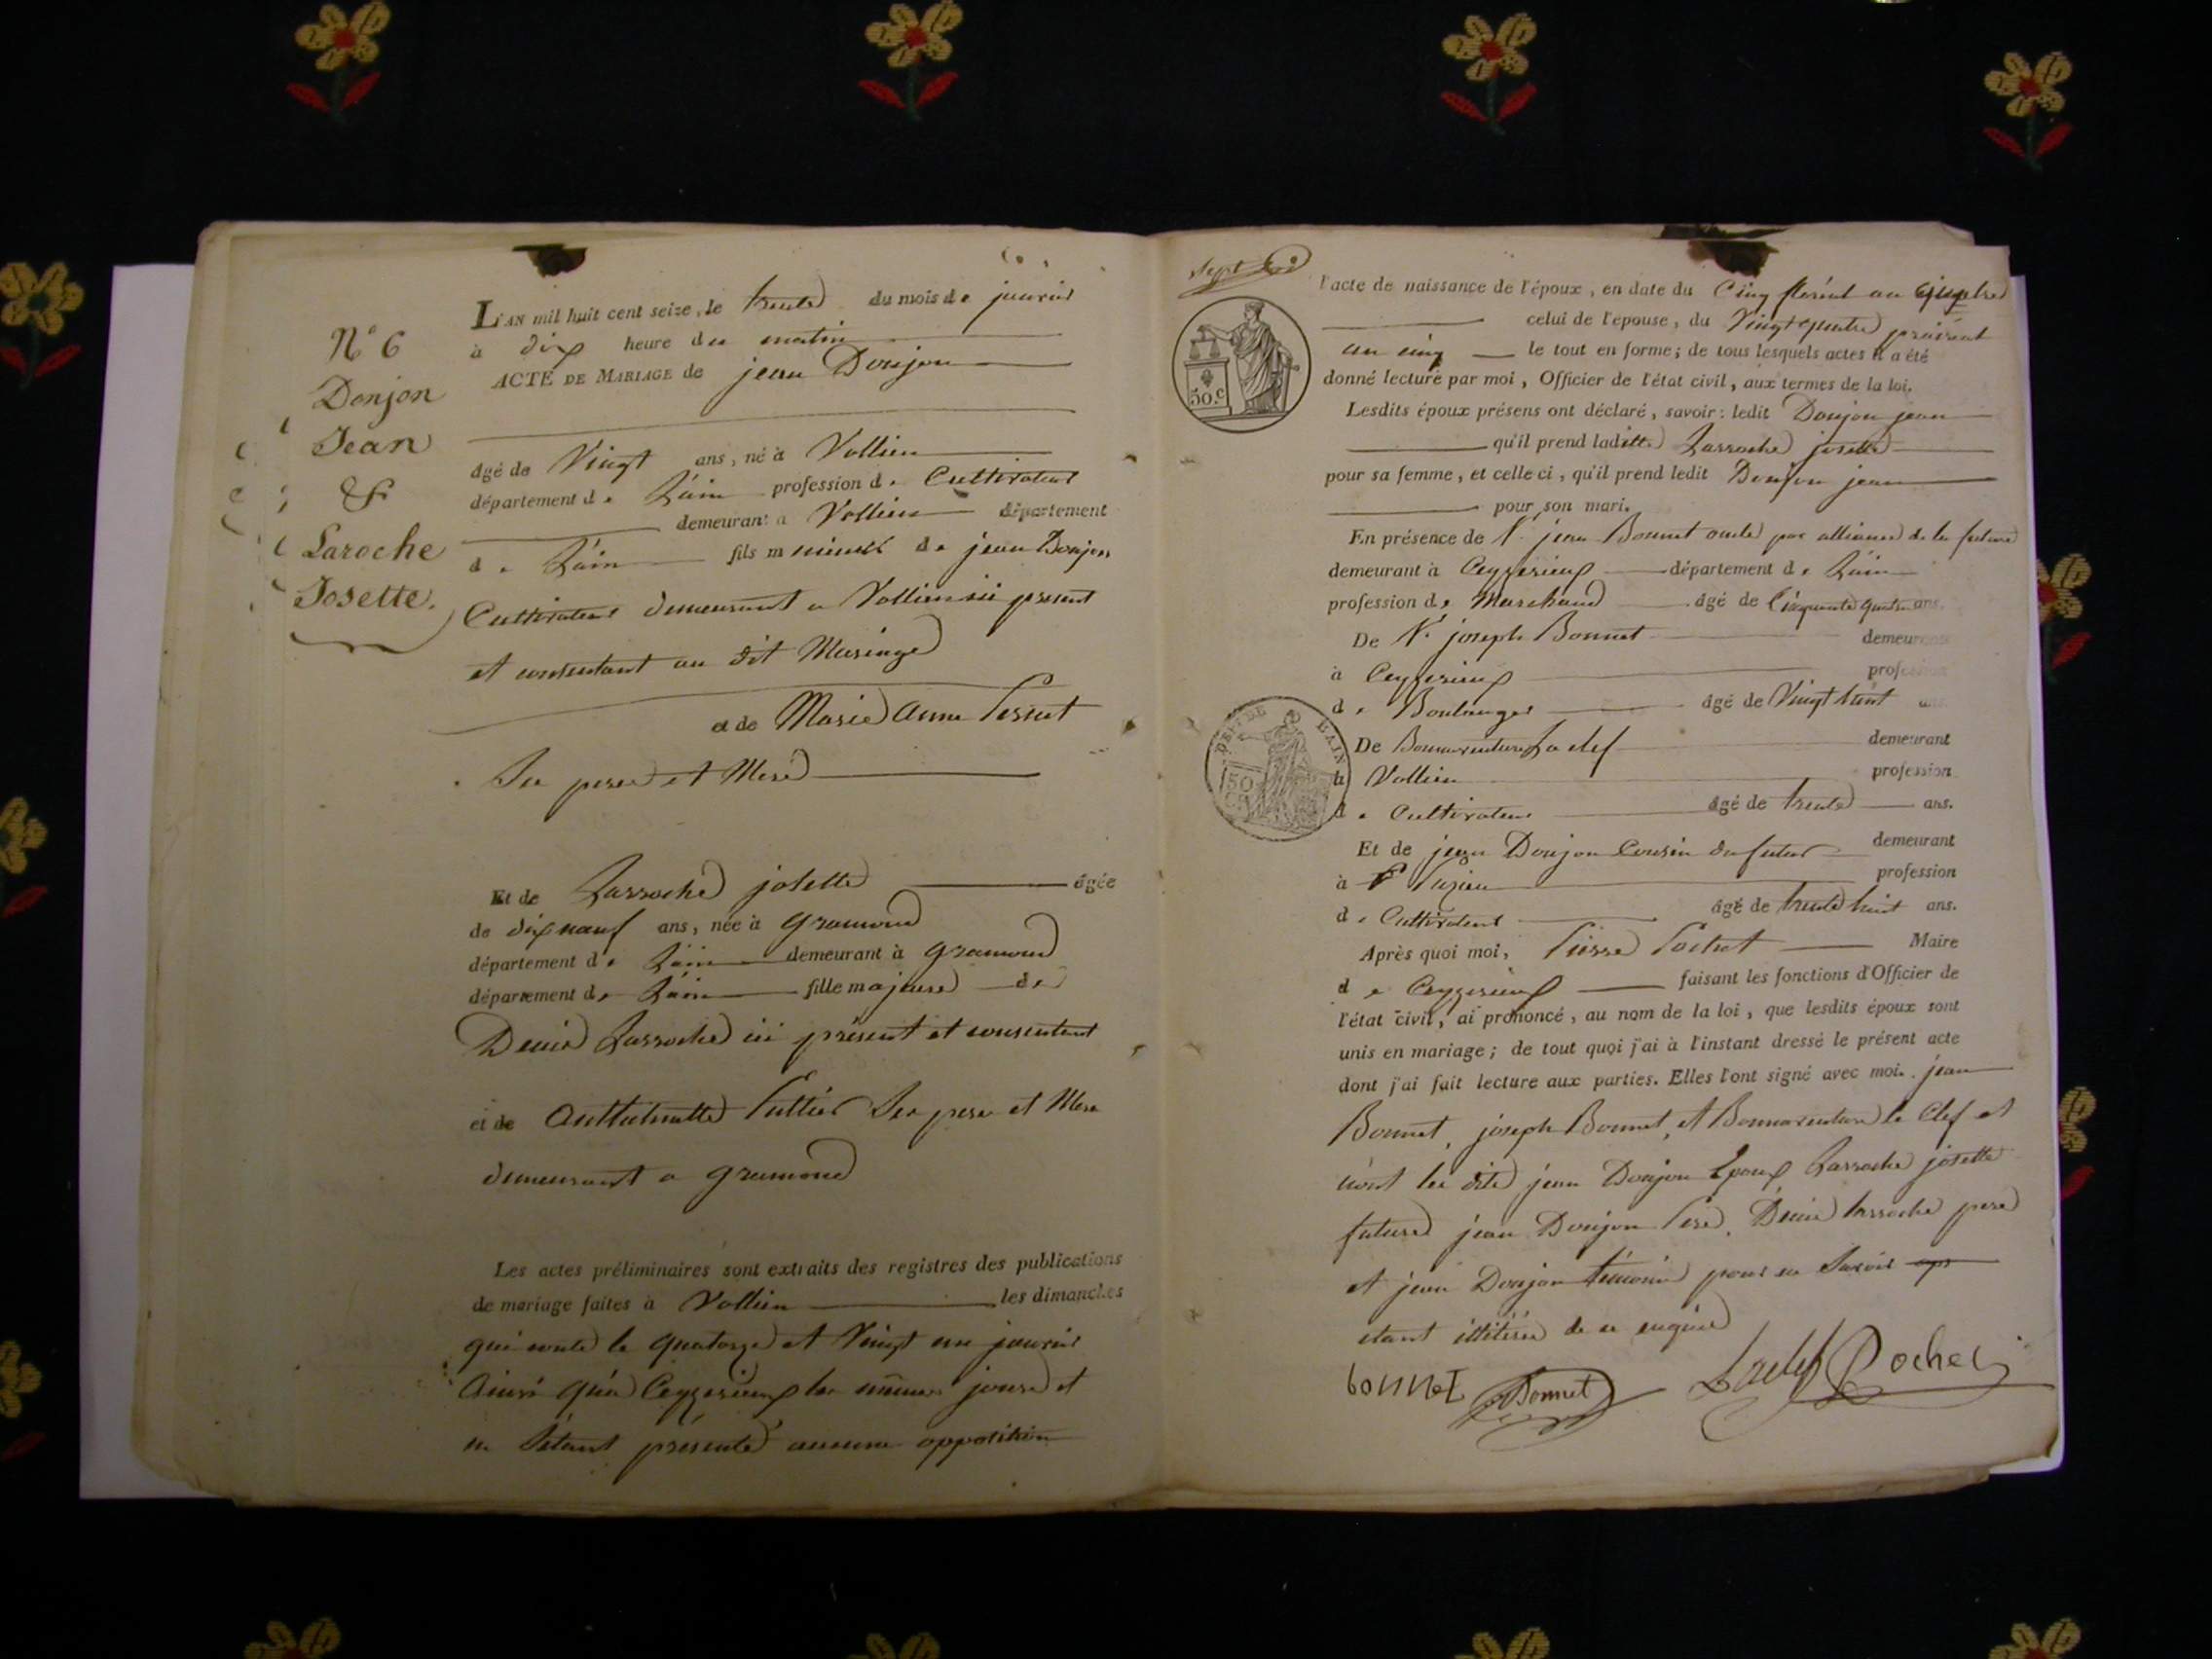 N° 6
Donjon
Jean
&
Laroche
Josette.
L'AN mil huit cent seize, le trente du mois de janvier
à dix heure du matin
ACTE DE MARIAGE de jean Donjon
âgé de Vingt ans, né à Vollien
département de Lain profession de Cultivateur
demeurant a Vollien département
de Lain fils mineur de jean Donjon
Cultivateur demeurant a Vollien ici present
et consentant au dit Mariage
et de Marie Anne
Ses pere et Mere
Et de Larroche josette âgée
de dix nauf ans, née à gramond
département de Lain demeurant à gramond
département de Lain fille majeure de
Denis Larroche ici présent et consentent
et de Anthelmette Ses pere et Mere
demeurant a gramond
Les actes préliminaires sont extraits des registres des publications
de mariage faites à Vollien les dimanches
qui conte le quatorze et Vingt un janvier
Ainsi qu'a Ceyzerieux les mêmes jours et
ne S'étant présenté aucune opposition
Sept
l'acte de naissance de l'époux, en date du Cinq floréal an
celui de l'epouse, du Vingt quatre prairial
an cinq le tout en forme; de tous lesquels actes il a été
donné lecture par moi, Officier de l'état civil, aux termes de la loi.
50.c
Lesdits époux présens ont déclaré, savoir: ledit Donjon jean
qu'il prend laditte Larroche josette
pour sa femme, et celle ci, qu'il prend ledit Donjon jean
pour son mari.
En présence de Sr. jean Bonnet oncle par alliance de la future
demeurant à Ceyzerieux département de Lain
profession de Marchand âgé de Cinquante quatre ans.
De Sr. joseph Bonnet demeurant
à Ceyzerieux profession
de Boulanger âgé de Vingt huit ans
DEPT DE L'AIN
50
De Bonnaventure La clef demeurant
à Vollien profession
de Cultivateur âgé de trente ans.
Et de jean Donjon Cousin du futur demeurant
à profession
de Cultivateur âgé de trente huit ans.
Après quoi moi, Pierre Pochet Maire
de Ceyzerieux faisant les fonctions d'Officier de
l'état civil, ai prononcé, au nom de la loi, que lesdits époux sont
unis en mariage; de tout quoi j'ai à l'instant dressé le présent acte
dont j'ai fait lecture aux parties. Elles l'ont signé avec moi. jean
Bonnet, joseph Bonnet, et Bonnaventure la Clef et
non les dits jean Donjon Epoux Larroche josette
future jean Donjon Pere, Denis larroche pere
et jean Donjon témoin pour ne Savoir
etant illitérés de ce enquis
bonnet Bonnet Laclef Pochet